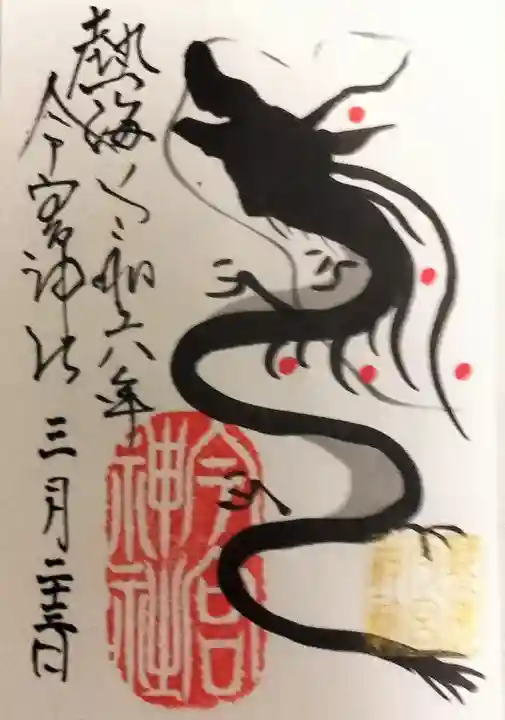 熱海 令和六年
今宮神社 三月二十三日
今宮
神社